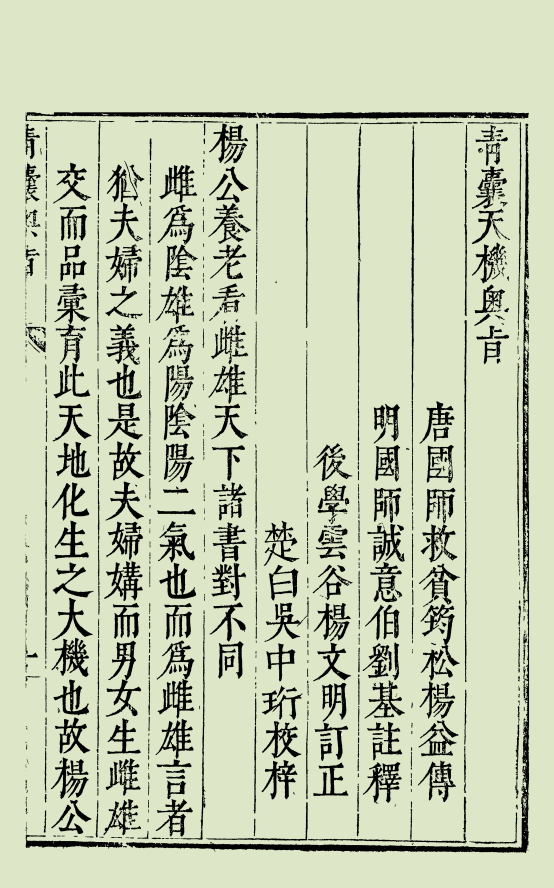 青囊天機奧旨
唐國師救貧筠松楊益傳
明國師誠意伯劉基註釋
後學雲谷楊文明訂正
楚白吳中珩校梓
楊公養老看雌雄天下諸書對不同
雌爲陰雄爲陽陰陽二氣也而爲雌雄言者
猶夫婦之義也是故夫婦媾而男女生雌雄
交而品彙育此天地化生之大機也故楊公
青囊奧旨